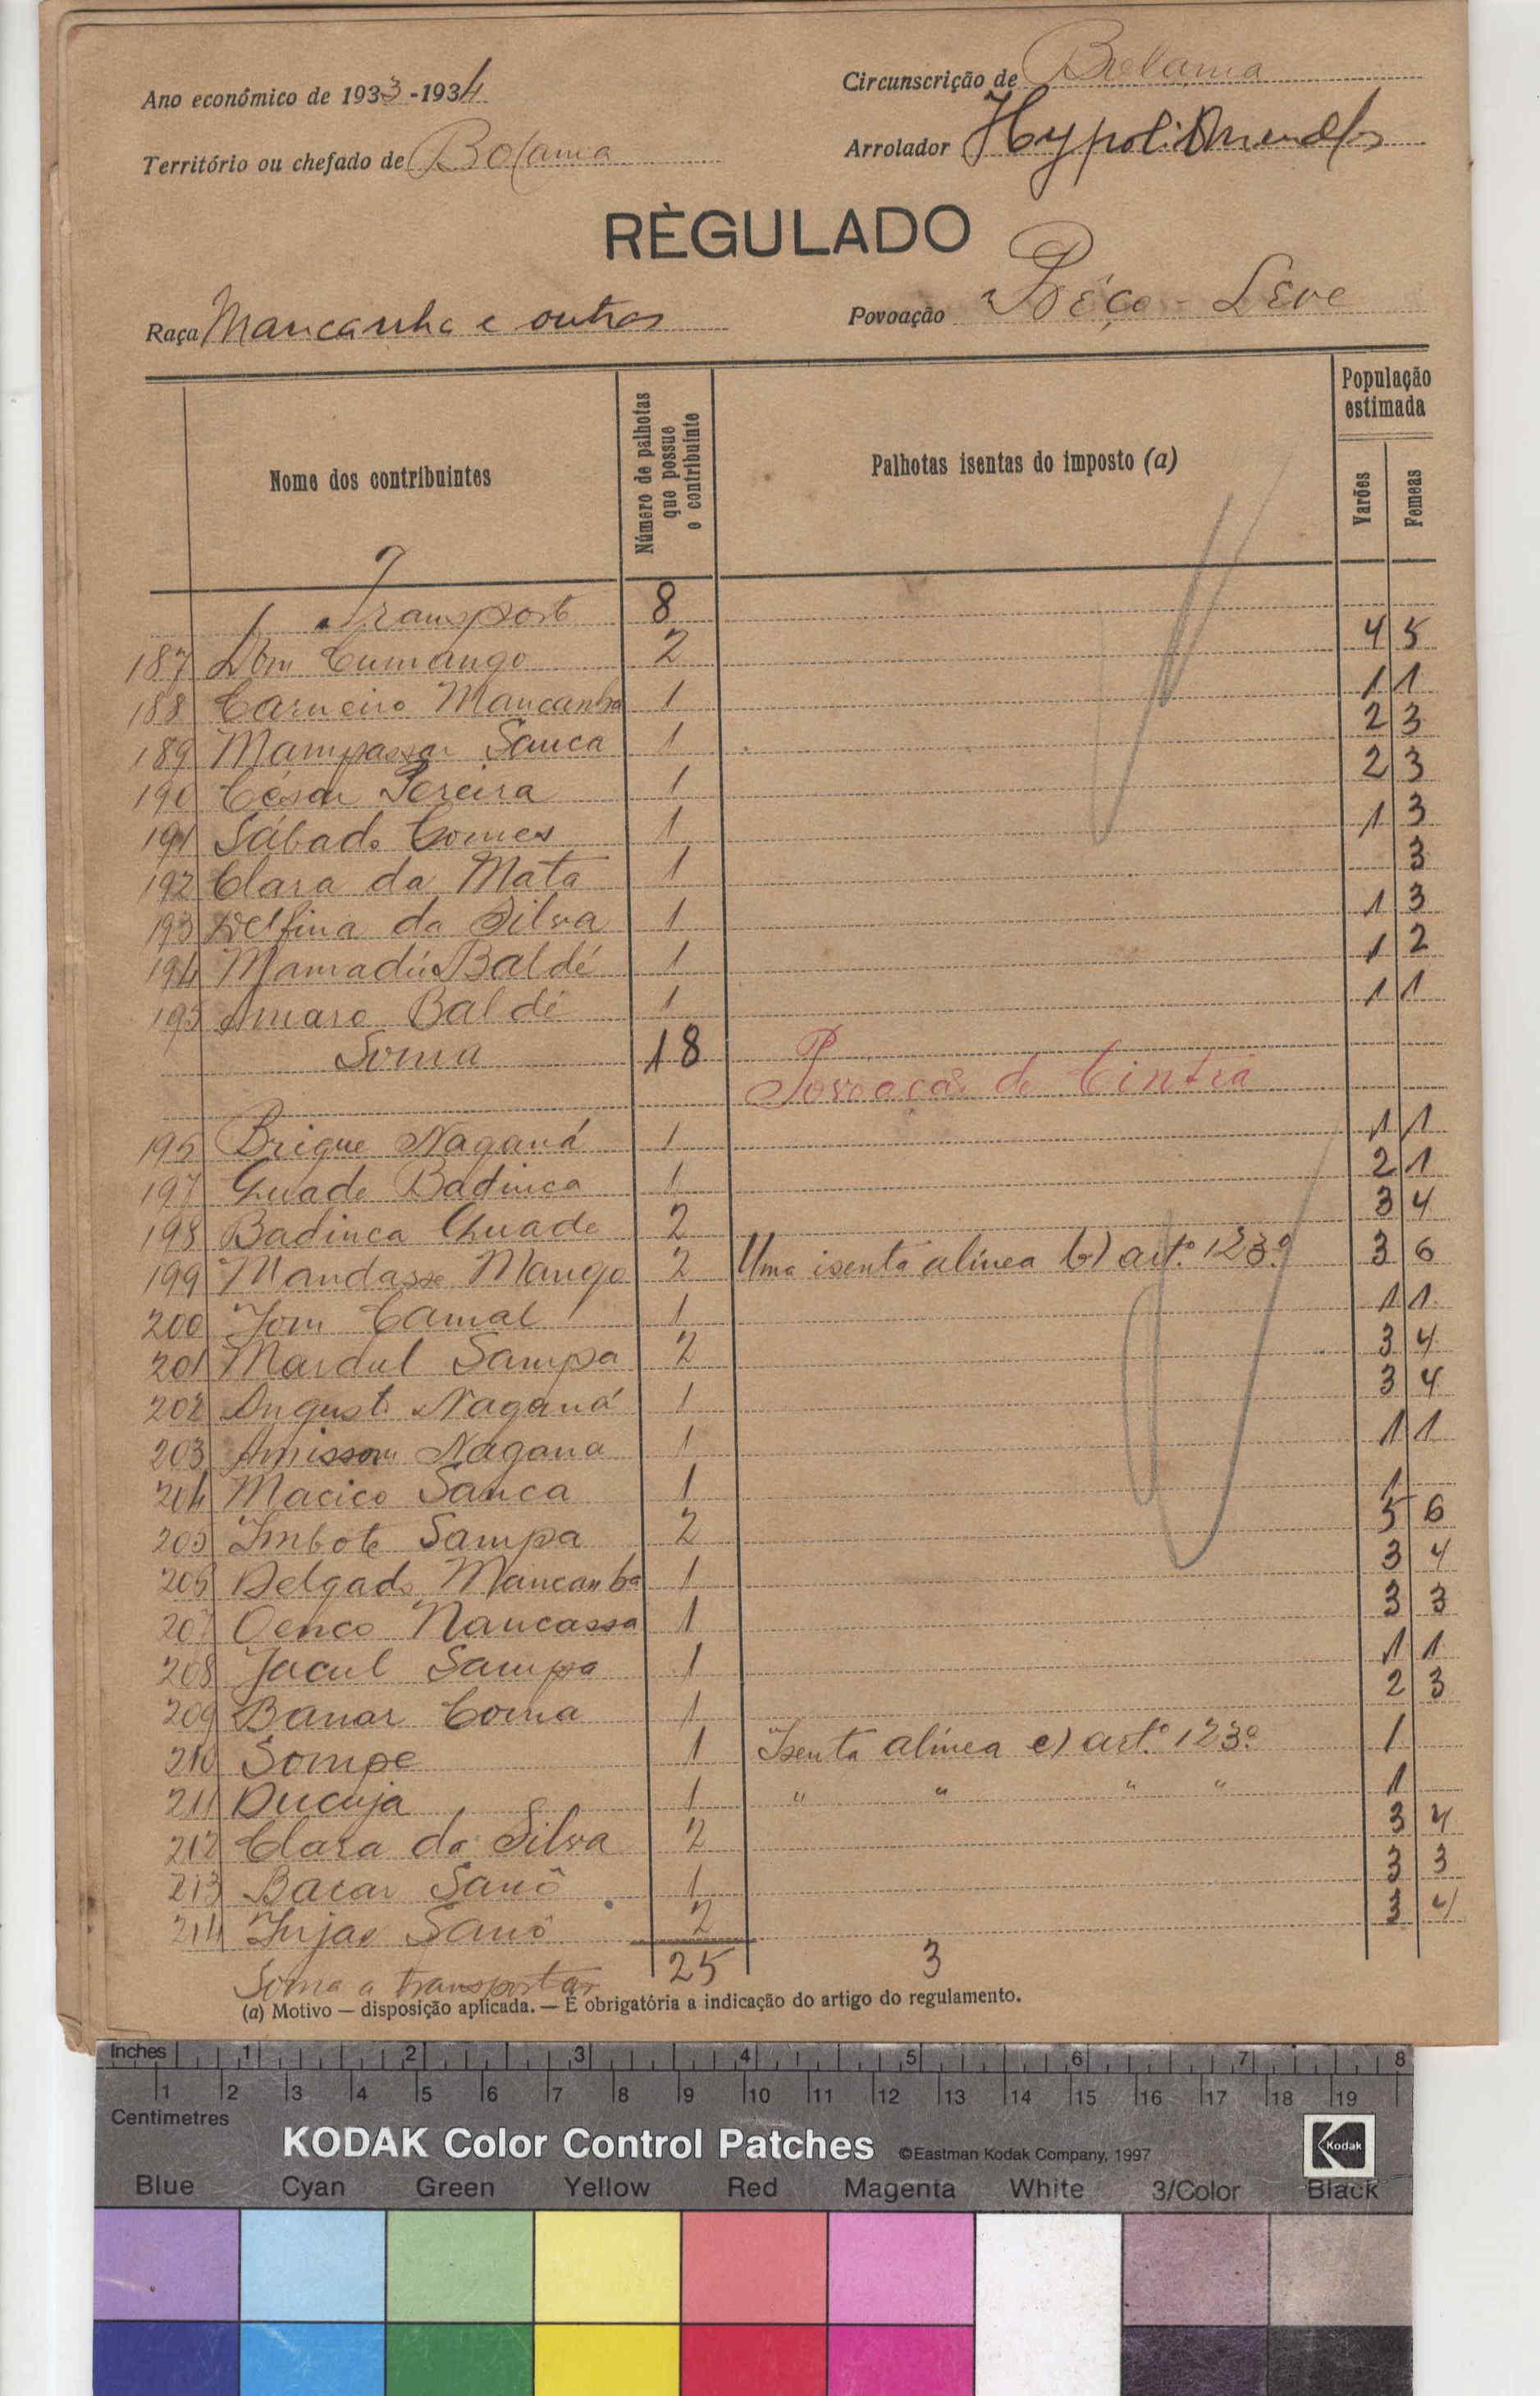 Ano económico de 1933-1934
Circunscrição de Bolama
Território ou chefado de Bolama
Arrolador Hypolit
RÈGULADO
Raça Mancanha e outros
Povoação Leve
Nome dos contribuintes
Número de palhotas que possue o contribuinte
Palhotas isentas do imposto (a)
População estimada
Varões
Femeas
Transport 8
187 Dom Cumango 2 4 5
188 Carneiro Mancanha 1 1 1
189 Mampassar Sanca 1 2 3
190 César Pereira 1 2 3
191 Sábado Gomes 1 1 3
192 Clara da Mata 1 3
193 Delfina da Silva 1 1 3
194 Mamadú Baldé 1 1 2
195 Amaro Baldé 1 1 1
Soma 18
Povoação de Cintra
196 Brique Naganá 1 1 1
197 Quade Badinca 1 2 1
198 Badinca Quade 2 3 4
199 Mandasse Mango 2 Uma isenta alínea b) art.º 123.º 3 6
200 Jom Camal 1 1 1
201 Mardul Sampa 2 3 4
202 August Naganá 1 3 4
203 Amissom Nagana 1 1 1
204 Macico Sanca 1 1
205 Imbote Sampa 2 5 6
206 Delgado Mancanha 1 3 4
207 Oenco Nancassa 1 3 3
208 Jacul Sampa 1 1 1
209 Banar Coma 1 2 3
210 Sompe 1 Isenta alínea c) art.º 123º 1
211 Ducuja 1 " " " " 1
212 Clara da Silva 2 3 4
213 Bacar Sanô 1 3 3
214 Injai Sanô 2 3 4
Soma a transportar 25 3
(a) Motivo — disposição aplicada. — É obrigatória a indicação do artigo do regulamento.
Inches 1 2 3 4 5 6 7 8
1 2 3 4 5 6 7 8 9 10 11 12 13 14 15 16 17 18 19
Centimetres
KODAK Color Control Patches ©Eastman Kodak Company, 1997 Kodak
Blue Cyan Green Yellow Red Magenta White 3/Color Black